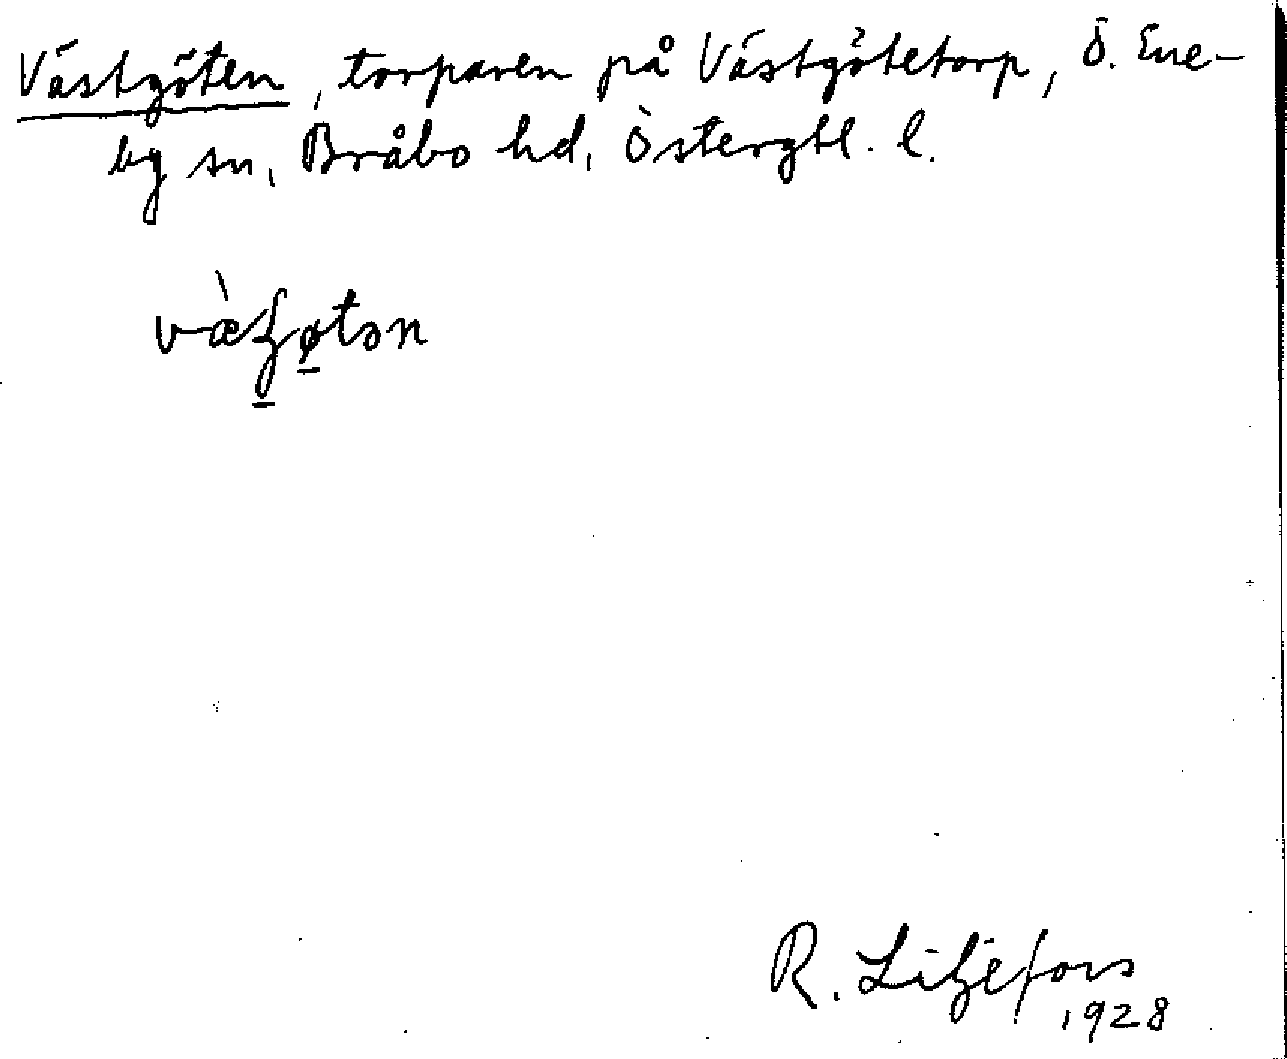 Västgöten, torparen på Västgötetorp, Ö. Ene-
bg sn, Bråbo hd, Östergtl. l.
R. Liljefors
1928